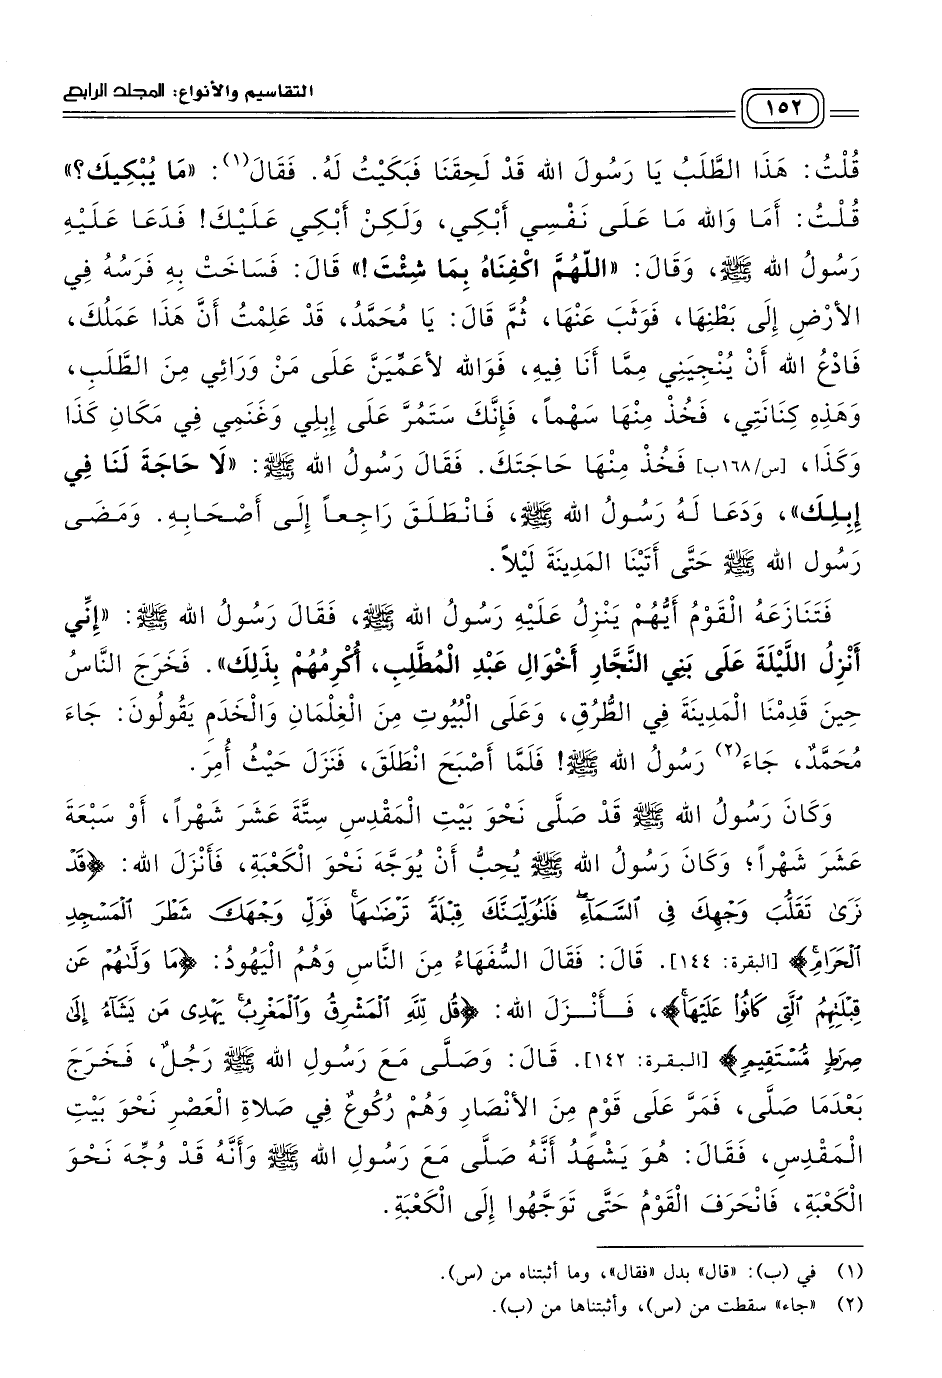 التقاسيم والأنواع: المجلد الرابع
١٥٢
قُلْتُ: هَذَا الطَّلَبُ يَا رَسُولَ الله قَدْ لَحِقَنَا فَبَكَيْتُ لَهُ. فَقَالَ(١): «مَا يُبْكِيكَ؟»
قُلْتُ: أَمَا وَالله مَا عَلَى نَفْسِي أَبْكِي، وَلَكِنْ أَبْكِي عَلَيْكَ! فَدَعَا عَلَيْهِ
رَسُولُ الله ﷺ، وَقَالَ: «اللّهُمَّ اكْفِنَاهُ بِمَا شِئْتَ!» قَالَ: فَسَاخَتْ بِهِ فَرَسُهُ فِي
الأَرْضِ إِلَى بَطْنِهَا، فَوَثَبَ عَنْهَا، ثُمَّ قَالَ: يَا مُحَمَّدُ، قَدْ عَلِمْتُ أَنَّ هَذَا عَمَلُكَ،
فَادْعُ الله أَنْ يُنْجِيَنِي مِمَّا أَنَا فِيهِ، فَوَالله لأُعَمِّيَنَّ عَلَى مَنْ وَرَائِي مِنَ الطَّلَبِ،
وَهَذِهِ كِنَانَتِي، فَخُذْ مِنْهَا سَهْماً، فَإِنَّكَ سَتَمُرُّ عَلَى إِبِلِي وَغَنَمِي فِي مَكَانِ كَذَا
وَكَذَا، [س/١٦٨ب] فَخُذْ مِنْهَا حَاجَتَكَ. فَقَالَ رَسُولُ الله ﷺ: «لَا حَاجَةَ لَنَا فِي
إِبِلِكَ»، وَدَعَا لَهُ رَسُولُ الله ﷺ، فَانْطَلَقَ رَاجِعاً إِلَى أَصْحَابِهِ. وَمَضَى
رَسُول الله ﷺ حَتَّى أَتَيْنَا المَدِينَةَ لَيْلاً.
فَتَنَازَعَهُ الْقَوْمُ أَيُّهُمْ يَنْزِلُ عَلَيْهِ رَسُولُ الله ﷺ، فَقَالَ رَسُولُ الله ﷺ: «إِنِّي
أَنْزِلُ اللَّيْلَةَ عَلَى بَنِي النَّجَّارِ أَخْوَالِ عَبْدِ الْمُطَّلِبِ، أُكْرِمُهُمْ بِذَلِكَ». فَخَرَجَ النَّاسُ
حِينَ قَدِمْنَا الْمَدِينَةَ فِي الطُّرُقِ، وَعَلَى الْبُيُوتِ مِنَ الْغِلْمَانِ وَالْخَدَمِ يَقُولُونَ: جَاءَ
مُحَمَّدٌ، جَاءَ(٢) رَسُولُ الله ﷺ! فَلَمَّا أَصْبَحَ انْطَلَقَ، فَنَزَلَ حَيْثُ أُمِرَ.
وَكَانَ رَسُولُ الله ﷺ قَدْ صَلَّى نَحْوَ بَيْتِ الْمَقْدِسِ سِتَّةَ عَشَرَ شَهْراً، أَوْ سَبْعَةَ
عَشَرَ شَهْراً؛ وَكَانَ رَسُولُ الله ﷺ يُحِبُّ أَنْ يُوَجَّهَ نَحْوَ الْكَعْبَةِ، فَأَنْزَلَ الله: ﴿قَدْ
نَرَىٰ تَقَلُّبَ وَجْهِكَ فِي السَّمَآءِۖ فَلَنُوَلِّيَنَّكَ قِبْلَةً تَرْضَىٰهَاۚ فَوَلِّ وَجْهَكَ شَطْرَ الْمَسْجِدِ
الْحَرَامِۚ﴾ [البقرة: ١٤٤]. قَالَ: فَقَالَ السُّفَهَاءُ مِنَ النَّاسِ وَهُمُ الْيَهُودُ: ﴿مَا وَلَّىٰهُمْ عَن
قِبْلَتِهِمُ الَّتِي كَانُوا۟ عَلَيْهَاۚ﴾، فَأَنْزَلَ الله: ﴿قُل لِّلَّهِ الْمَشْرِقُ وَالْمَغْرِبُۚ يَهْدِي مَن يَشَآءُ إِلَىٰ
صِرَٰطٍ مُّسْتَقِيمٍ﴾ [البقرة: ١٤٢]. قَالَ: وَصَلَّى مَعَ رَسُولِ الله ﷺ رَجُلٌ، فَخَرَجَ
بَعْدَمَا صَلَّى، فَمَرَّ عَلَى قَوْمٍ مِنَ الأَنْصَارِ وَهُمْ رُكُوعٌ فِي صَلاةِ الْعَصْرِ نَحْوَ بَيْتِ
الْمَقْدِسِ، فَقَالَ: هُوَ يَشْهَدُ أَنَّهُ صَلَّى مَعَ رَسُولِ الله ﷺ وَأَنَّهُ قَدْ وُجِّهَ نَحْوَ
الْكَعْبَةِ، فَانْحَرَفَ الْقَوْمُ حَتَّى تَوَجَّهُوا إِلَى الْكَعْبَةِ.
(١) في (ب): «قال» بدل «فقال»، وما أثبتناه من (س).
(٢) «جاء» سقطت من (س)، وأثبتناها من (ب).